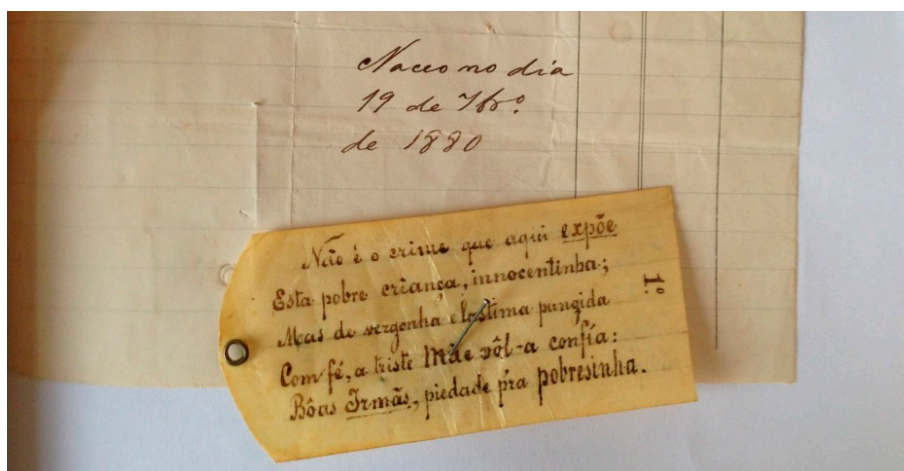 Naceo no dia
19 de 7br.º
de 1880
Não é o crime que aqui expõe
Esta pobre criança, innocentinha;
Mas de vergonha e lastima pungida
Com fé, a triste Mãe vôl-a confía:
Bôas Irmãs, piedade p'ra pobresinha.
1º.